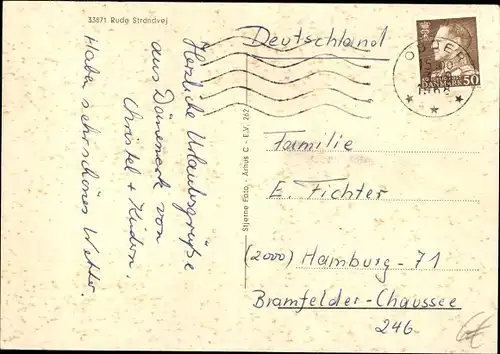 33871 Rude Strandvej
Herzliche Urlaubsgrüße
aus Dänemark von
Christel + Kindern.
Habe sehr schönes Wetter.
Stjerne Foto - Århus C - E.V. 262
Deutschland
ODDER
DANMARK
50
Familie
E. Fichter
(2000) Hamburg - 71
Bramfelder-Chaussee
246